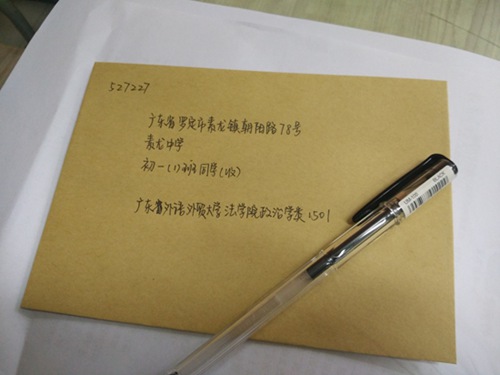 527227
广东省罗定市素龙镇朝阳路78号
素龙中学
初一(1)班同学(收)
广东省外语外贸大学法学院政治学类1501